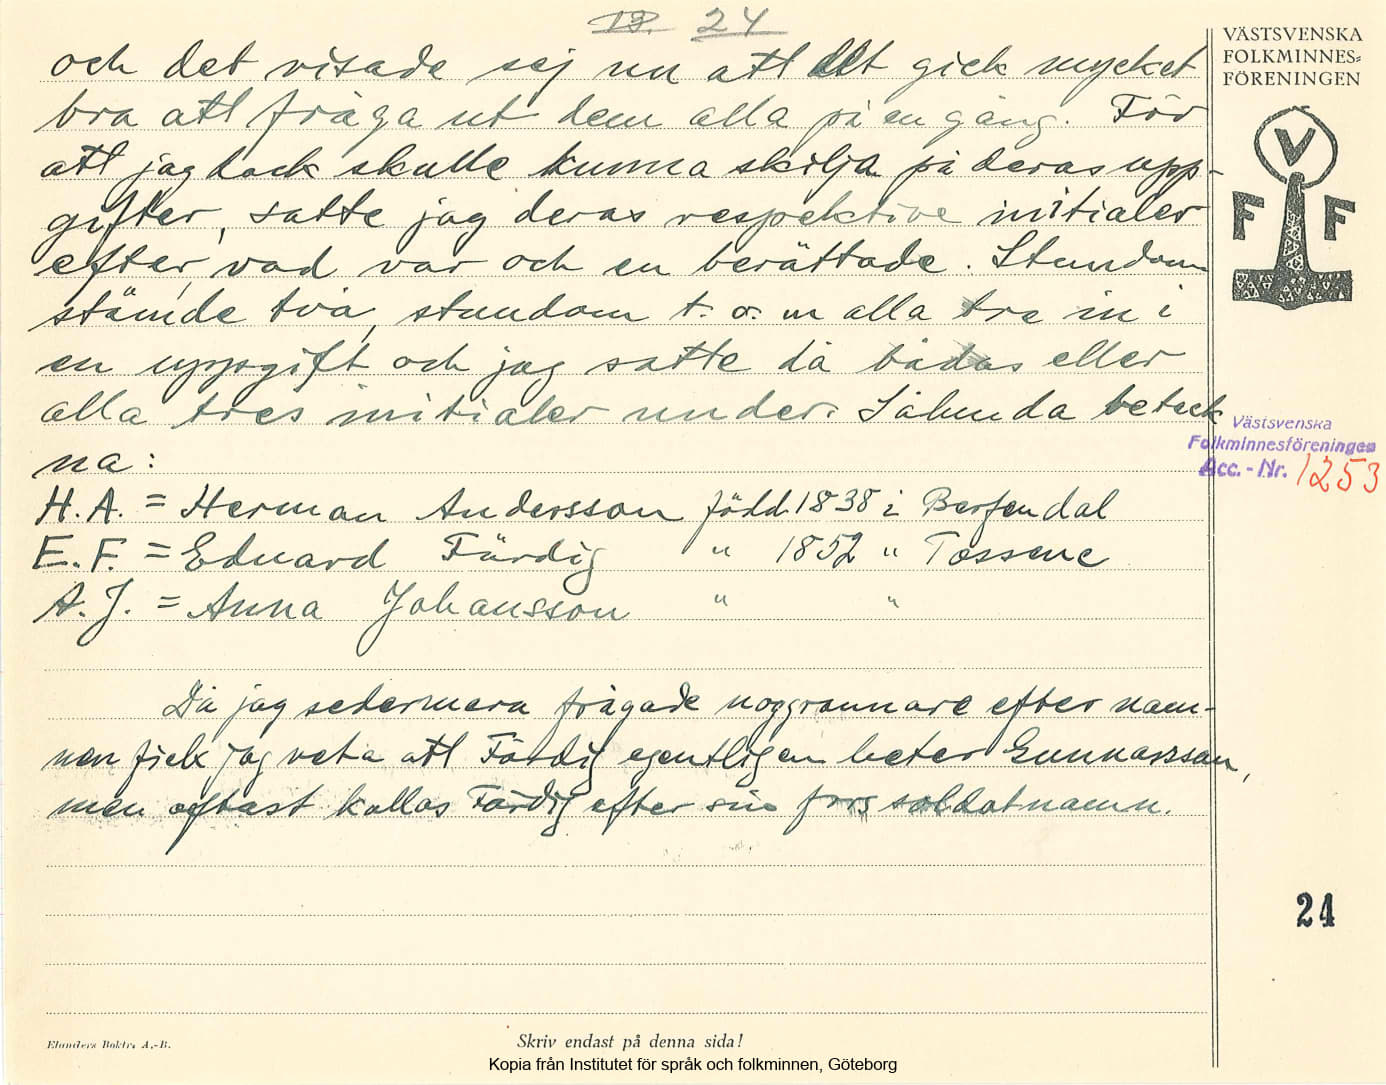 13. 24
och det visade sej nu att det gick mycket
bra att fråga ut dem alla på en gång. För
att jag dock skulle kunna skilja på deras upp-
gifter, satte jag deras respektive initialer
efter, vad var och en berättade. Stundom
stämde två, stundom t. o. m alla tre in i
en uppgift och jag satte då bådas eller
alla tres initialer under. Sålunda beteck
na:
H.A. = Herman Andersson född 1838 i Berfendal
E.F. = Eduard Färdig " 1852 " Tossene
A.J. = Anna Johansson " "
Då jag sedermera frågade noggrannare efter nam-
nen fick jag veta att Färdig egentligen heter Gunnarsson,
men oftast kallas Färdig efter sin fars soldatnamn.
VÄSTSVENSKA
FOLKMINNES=
FÖRENINGEN
V
F F
Västsvenska
Folkminnesföreningen
Acc.-Nr. 1253
24
Elanders Boktr. A.-B.
Skriv endast på denna sida!
Kopia från Institutet för språk och folkminnen, Göteborg